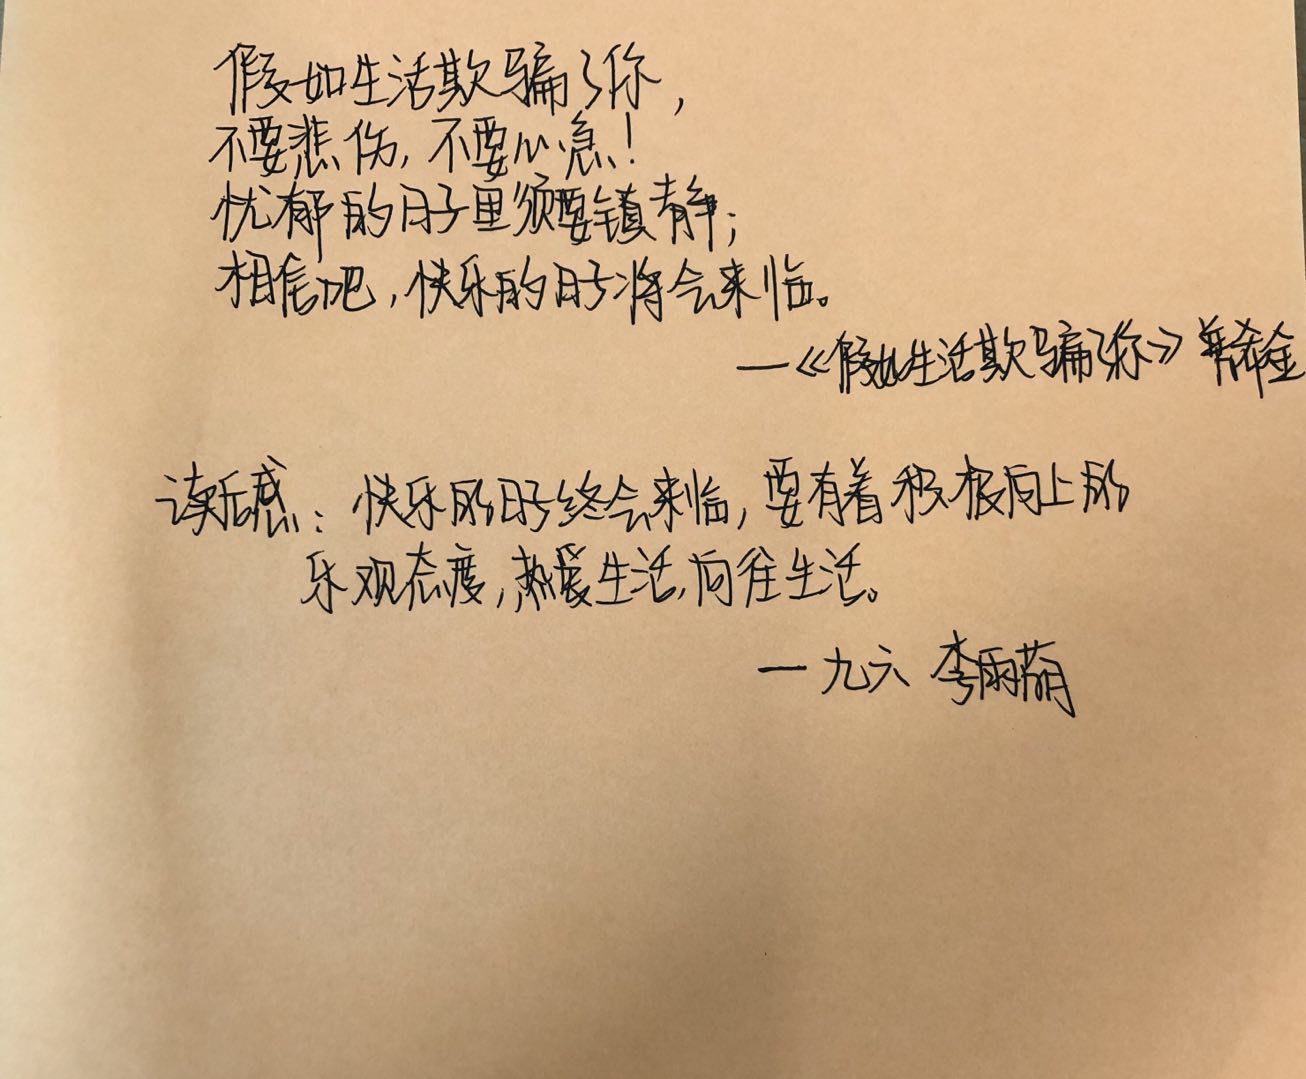 假如生活欺骗了你，
不要悲伤，不要心急！
忧郁的日子里须要镇静；
相信吧，快乐的日子将会来临。
—《假如生活欺骗了你》普希金
读后感：快乐的日子终会来临，要有着积极向上的
乐观态度，热爱生活，向往生活。
—九六 李雨萌